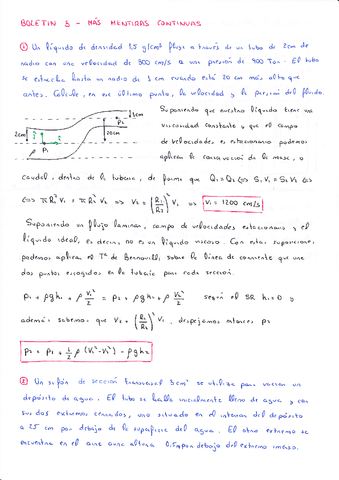 BOLETÍN 3 - MÁS MENTIRAS CONTINUAS
① Un líquido de densidad 1,5 g/cm³ fluye a través de un tubo de 2cm de
radio con una velocidad de 300 cm/s a una presión de 900 Torr. El tubo
se estrecha hasta un radio de 1 cm cuando está 20 cm más alto que
antes. Calcule, en ese último punto, la velocidad y la presión del fluido.
Suponiendo que nuestro líquido tiene una
viscosidad constante y que el campo
de velocidades es estacionario podemos
aplicar la conservación de la masa, o
2cm P1 20cm P2 1cm
caudal, dentro de la tubería, de forma que Q1 = Q2 ⟺ S1 V1 = S2 V2 ⟺
⟺ π R1² V1 = π R2² V2 ⟹ V2 = (R1/R2)² V1 ⟹ V1 = 1200 cm/s
Suponiendo un flujo laminar, campo de velocidades estacionario y el
líquido ideal, es decir, no es un líquido viscoso. Con estas suposiciones
podemos aplicar el Tª de Bernouilli sobre la línea de corriente que une
dos puntos escogidos en la tubería para cada sección.
P1 + ρgh1 + ρ V1²/2 = P2 + ρgh2 + ρ V2²/2 según el SR h1=0 y
además sabemos que V2 = (R1/R2)² V1, despejamos entonces P2
P2 = P1 + 1/2 ρ (V1² - V2²) - ρgh2
② Un sifón de sección transversal 3 cm² se utiliza para vaciar un
depósito de agua. El tubo se halla inicialmente lleno de agua y con
sus dos extremos cerrados, uno situado en el interior del depósito
a 25 cm por debajo de la superficie del agua. El otro extremo se
encuentra en el aire a una altura 0.5m por debajo del extremo inmerso.